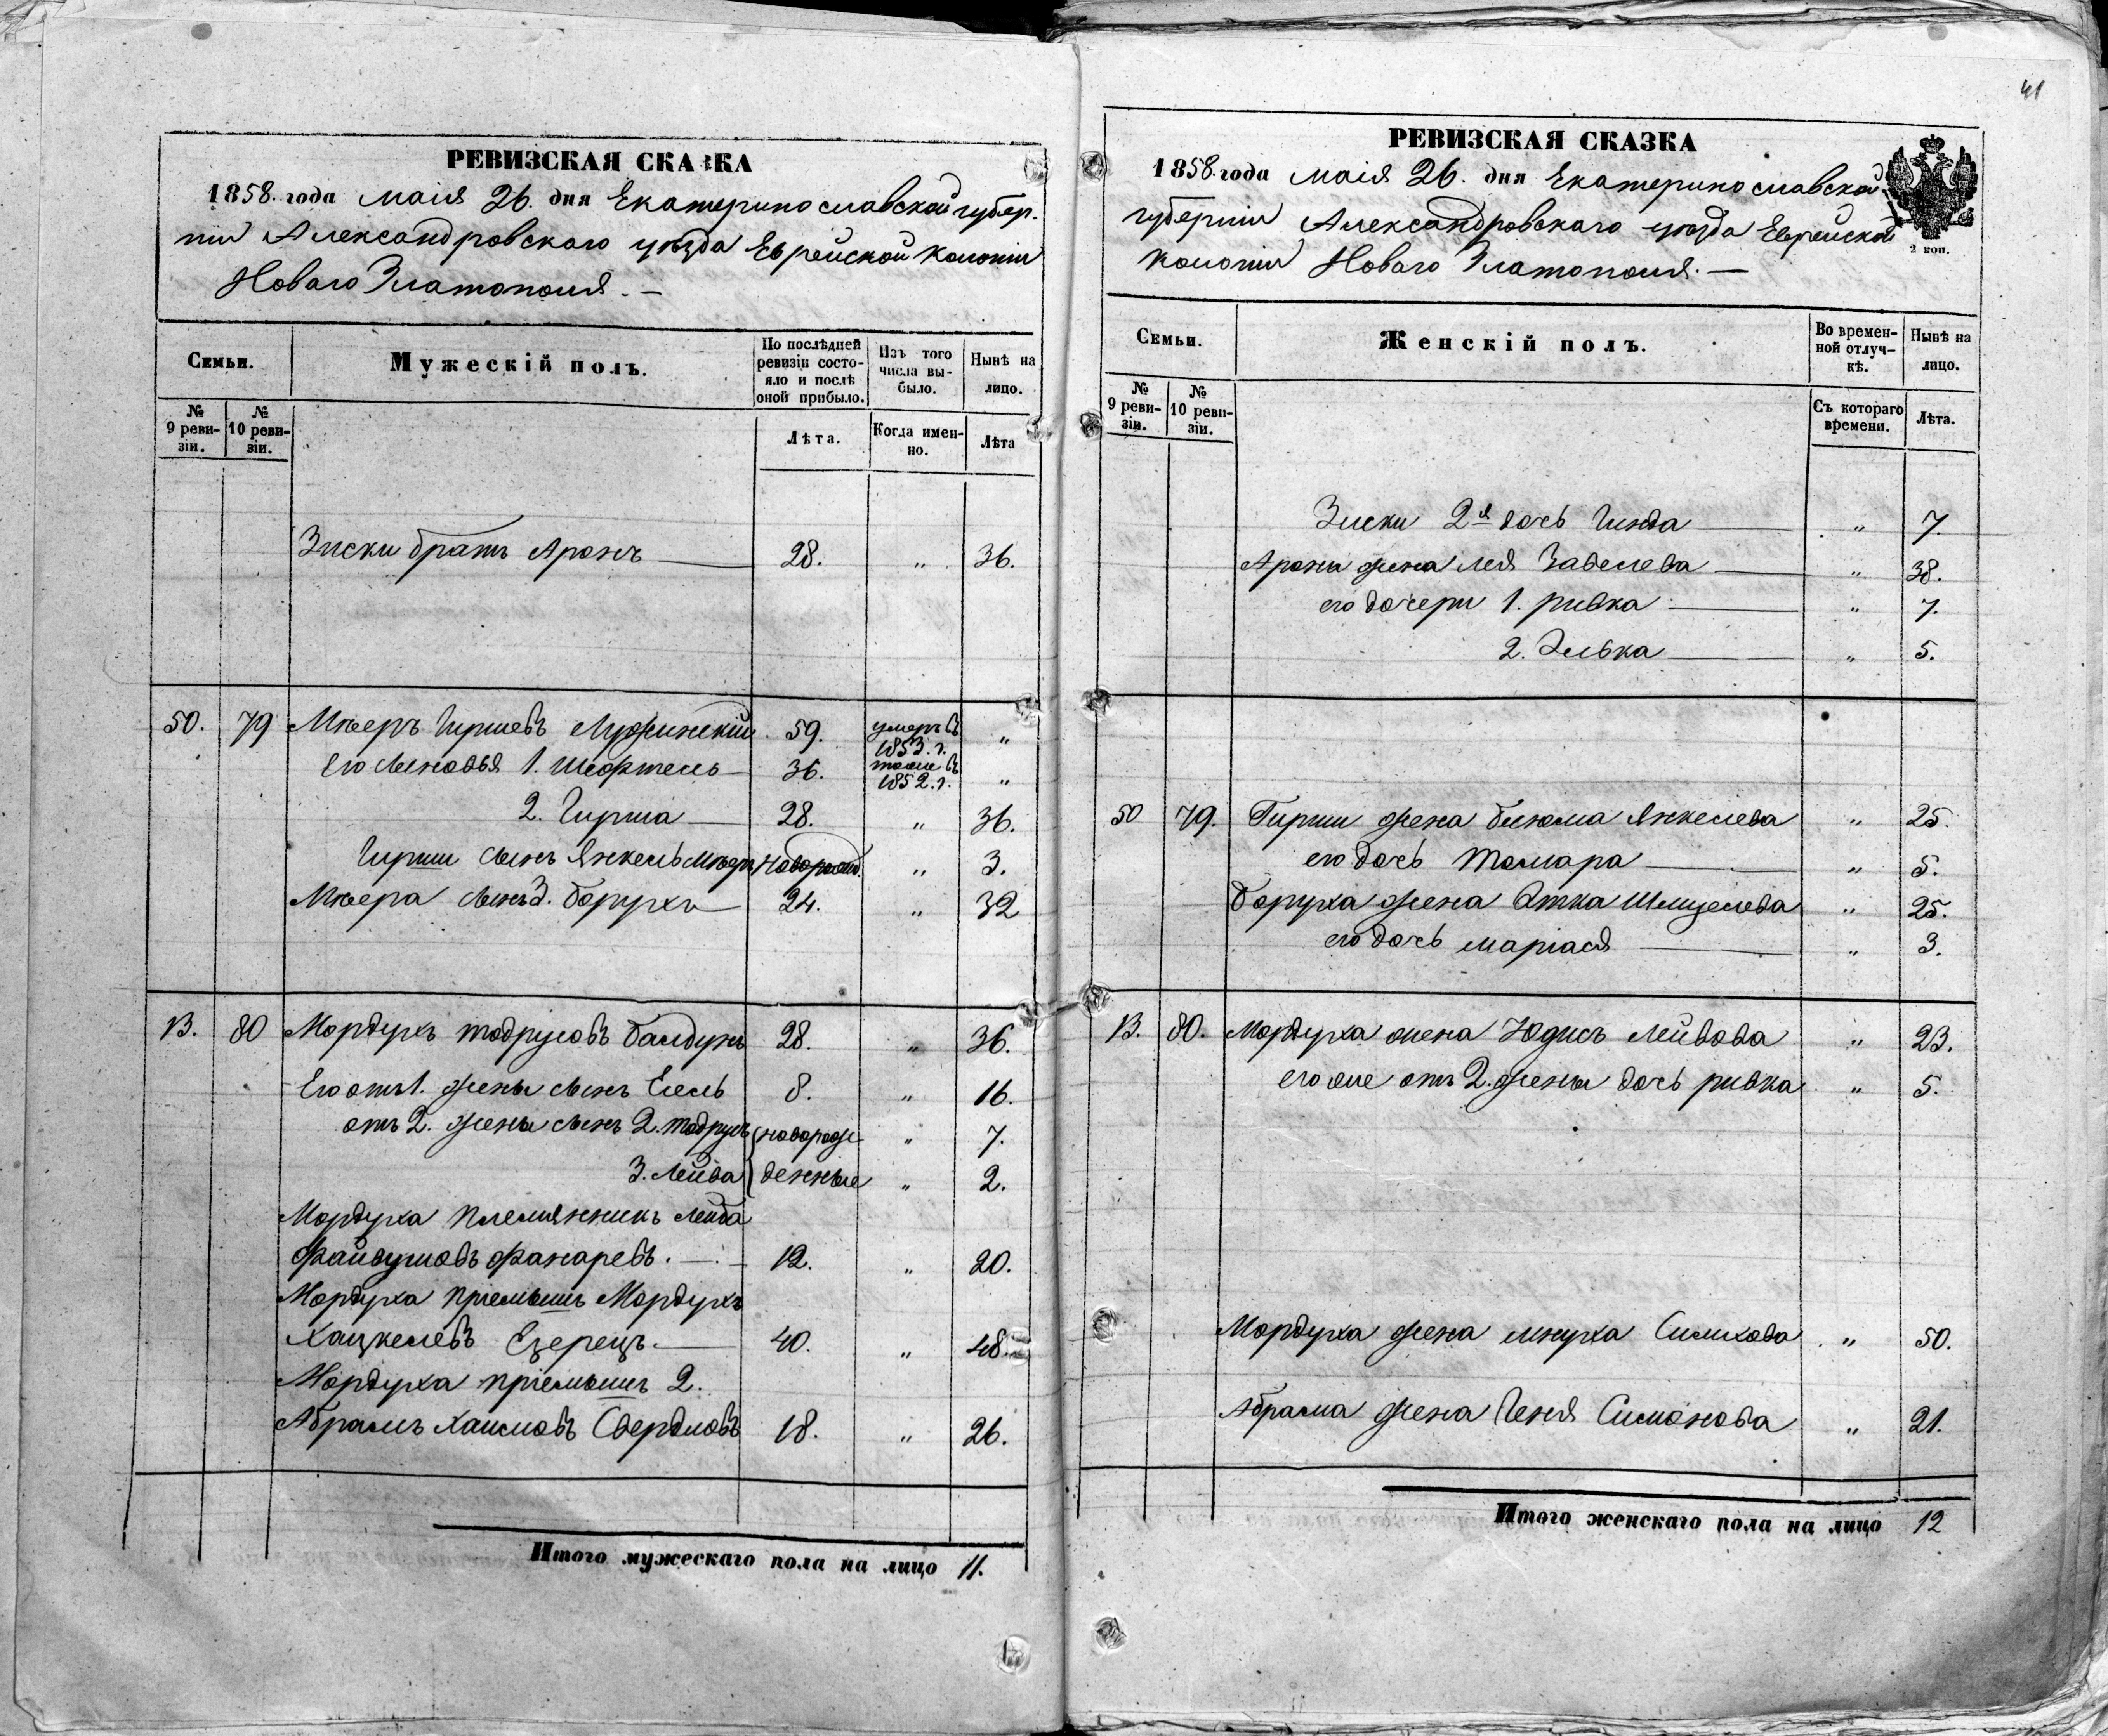 41
РЕВИЗСКАЯ СКАЗКА
1858. года маія 26. дня Екатеринославской губер-
ніи Александровскаго уѣзда Еврейской колоніи
Новаго Златополя. —
Семьи.
Мужескій полъ.
По послѣдней ревизіи состо-
яло и послѣ оной прибыло.
Изъ того числа вы-
было.
Нынѣ на лицо.
№ 9 реви-
зіи.
№ 10 реви-
зіи.
Лѣта.
Когда имен-
но.
Лѣта
Зиски братъ Аронъ 28. „ 36.
50. 79 Мееръ Гиршевъ 59. умеръ въ 1853. г. „
Его сыновья 1. 36. тоже въ 1852. г. „
2. Гирша 28. „ 36.
Гирши сынъ Янкель Мееръ новорожд. „ 3.
Меера сынъ 3. Борухъ 24. „ 32
В. 80 Мордухъ Тодрусовъ Балдунъ 28. „ 36.
Его отъ 1. жены сынъ 8. „ 16.
отъ 2. жены сынъ 2. Тодрусъ новорож- „ 7.
3. Лейба денные „ 2.
Мордуха племянникъ Лейба
Файвушовъ Фанаревъ. — 12. „ 20.
Мордуха пріемышъ Мордухъ
Хацкелевъ Езерецъ. 40. „ 48.
Мордуха пріемышъ 2.
Абрамъ Хаимовъ Свердловъ 18. „ 26.
Итого мужескаго пола на лицо 11.
РЕВИЗСКАЯ СКАЗКА
1858. года маія 26. дня Екатеринославской
губерніи Александровскаго уѣзда Еврейской
колоніи Новаго Златополя. —
2 коп.
Семьи.
Женскій полъ.
Во времен-
ной отлуч-
кѣ.
Нынѣ на лицо.
№ 9 реви-
зіи.
№ 10 реви-
зіи.
Съ котораго времени.
Лѣта.
Зиски 2я дочь Гинда „ 7.
Арона жена Лея Завелева „ 38.
его дочери 1. Ривка „ 7.
2. Элька „ 5.
50 79. Гирши жена Блюма Янкелева „ 25.
его дочь Тамара „ 5.
Боруха жена Этка „ 25.
его дочь Маріася „ 3.
В. 80. Мордуха жена Юдисъ Лейбова „ 23.
его же отъ 2. жены дочь Ривка „ 5.
Мордуха жена „ 50.
Абрама жена Геня Симонова „ 21.
Итого женскаго пола на лицо 12